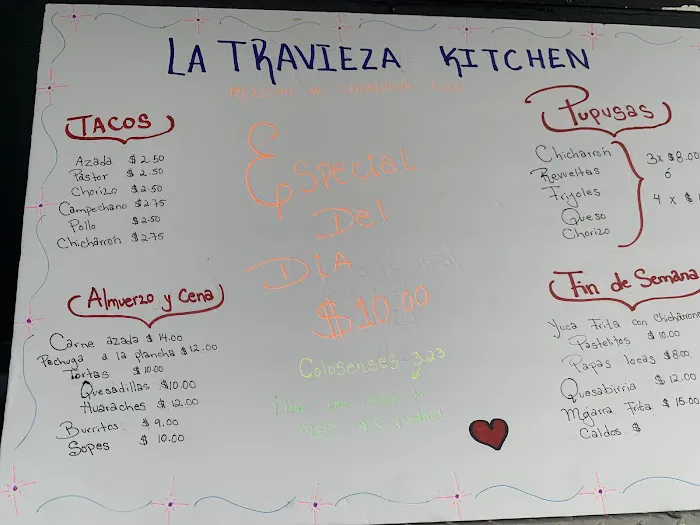 LA TRAVIEZA KITCHEN
TACOS
Azada $2.50
Pastor $2.50
Chorizo $2.50
Campechano $2.75
Pollo $2.50
Chicharrón $2.75
Almuerzo y Cena
Carne azada $14.00
Pechuga a la plancha $12.00
Tortas $10.00
Quesadillas $10.00
Huaraches $12.00
Burritos $9.00
Sopes $10.00
Especial
Del
Dia
$10.00
Colosenses 3,23
Pupusas
Chicharrón
Revueltas
Frijoles
Queso
Chorizo
3x $8.00
ó
4 x $
Fin de Semana
Yuca Frita con chicharrone
Pastelitos $10.00
Papas locas $8.00
Quesabirria $12.00
Mojarra Frita $15.00
Caldos $